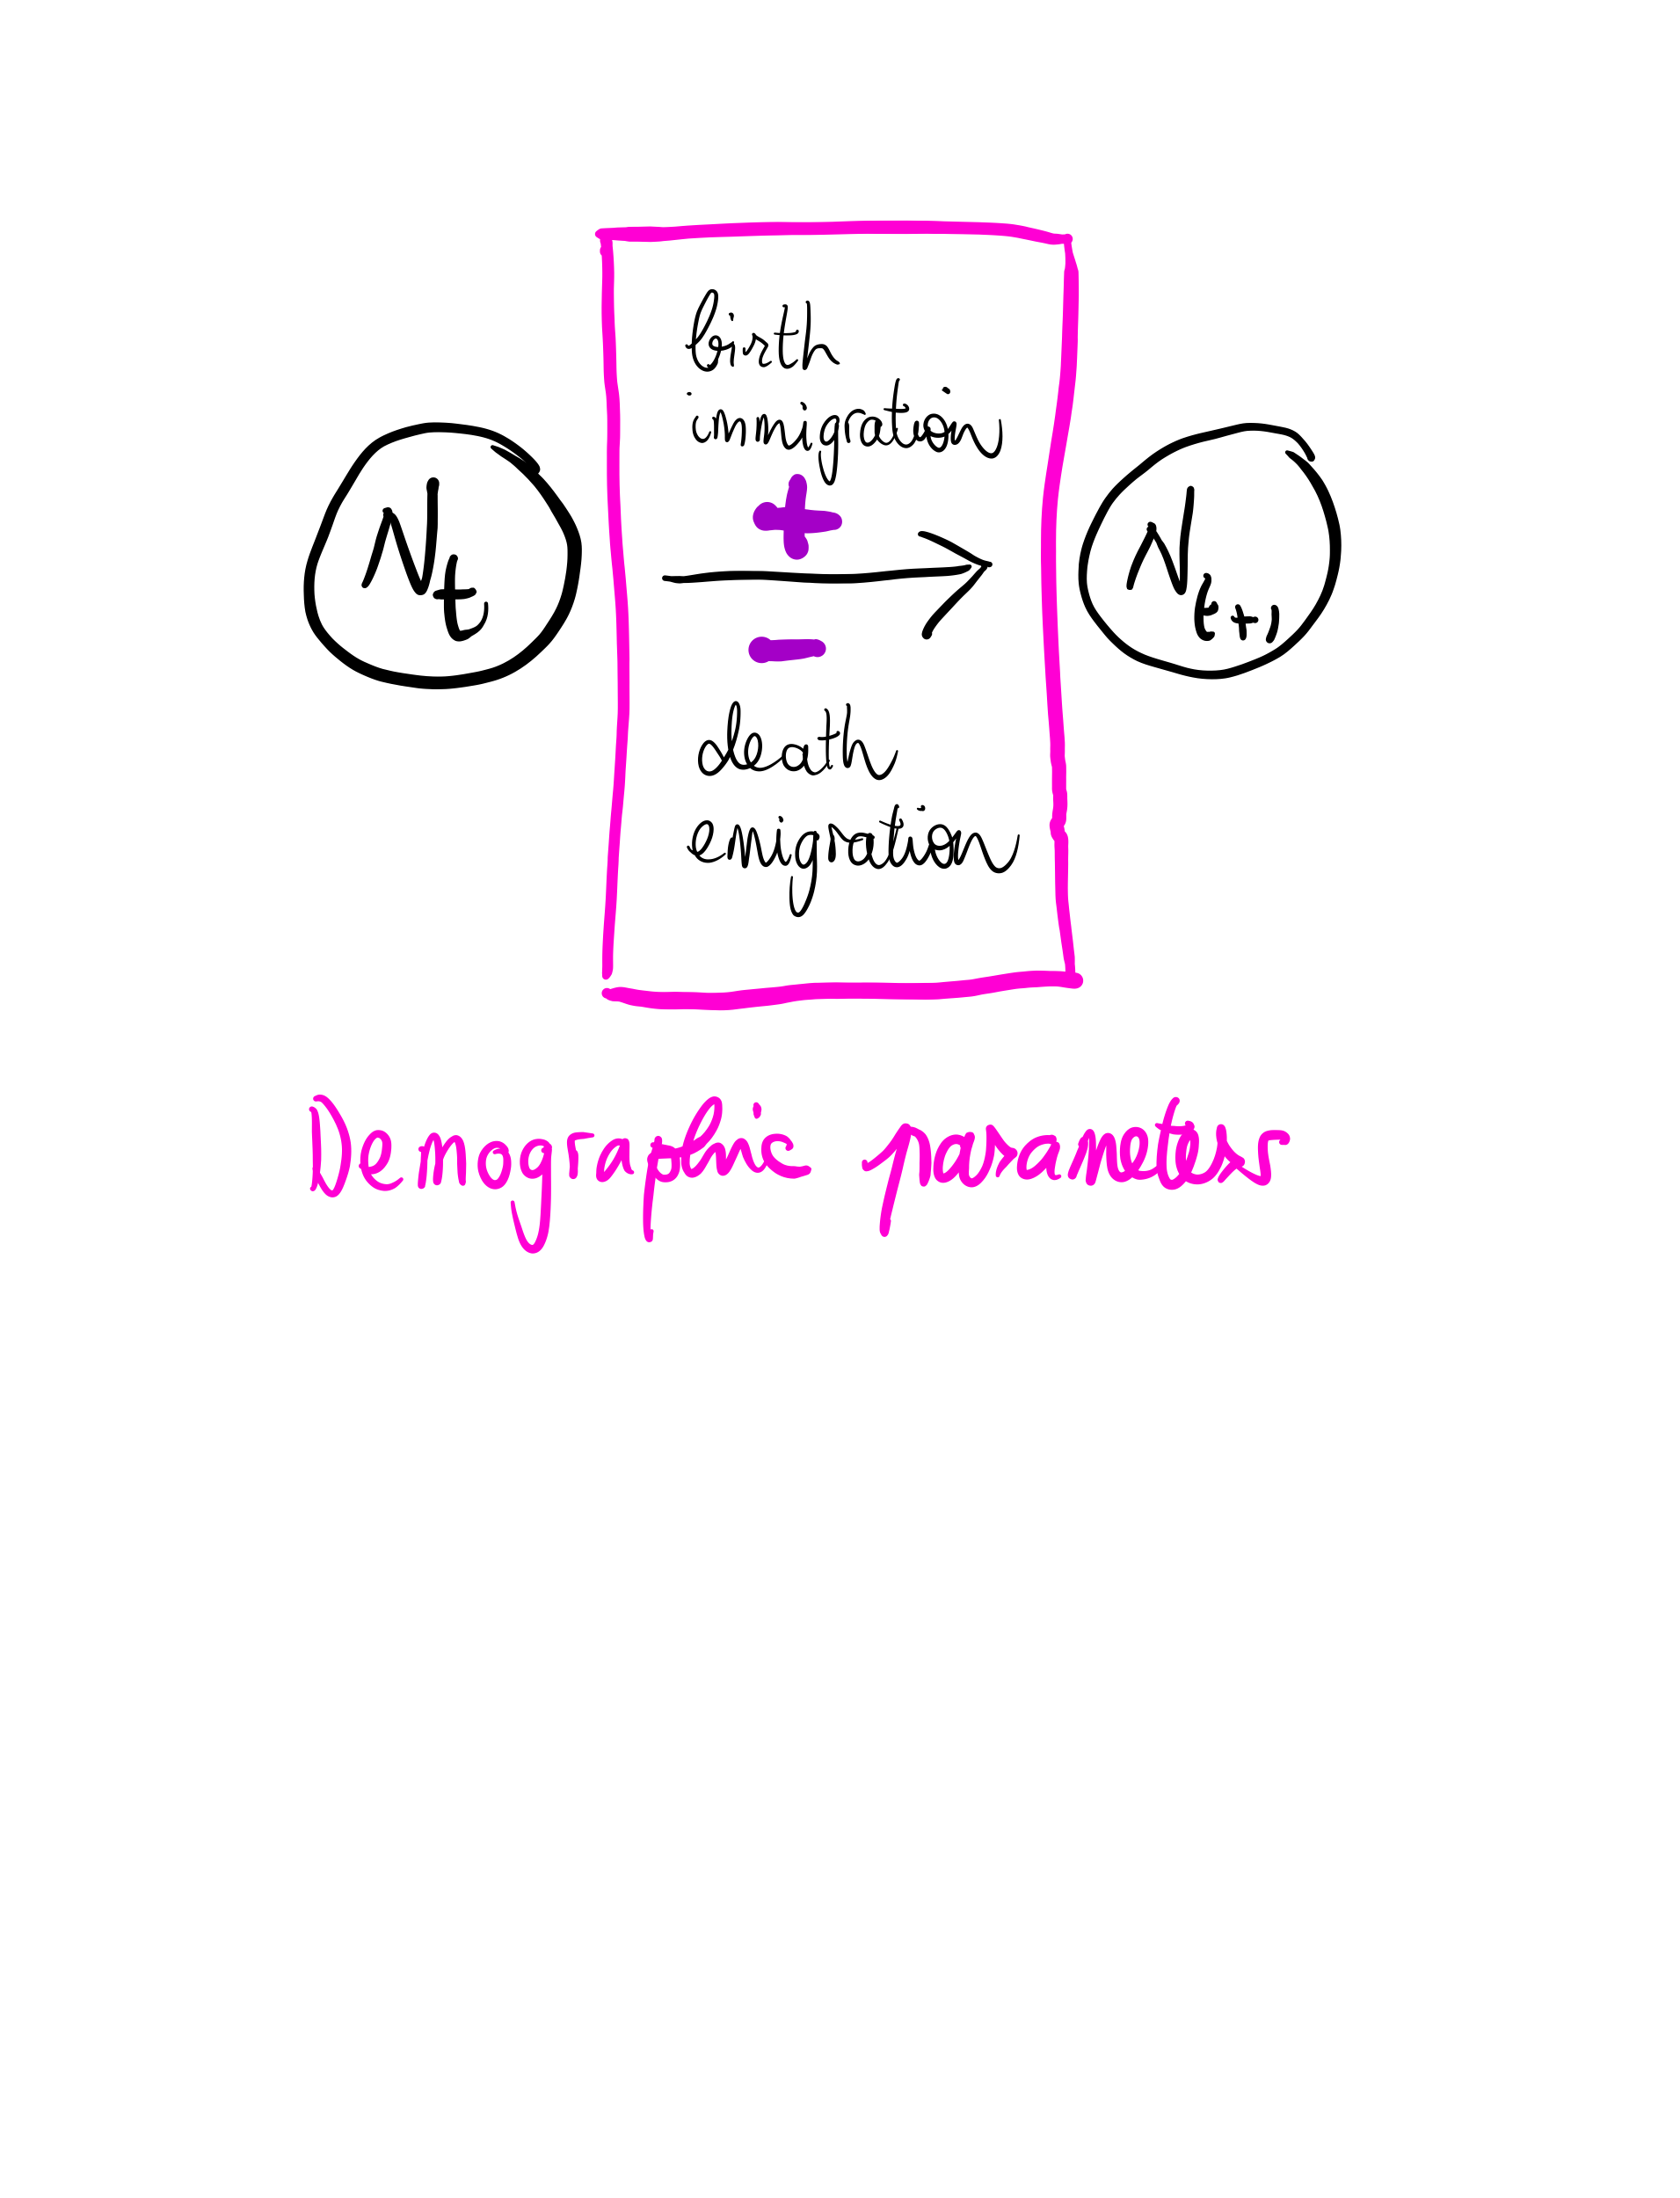 birth
immigration
+
N_t
N_t+1
-
death
emigration
Demographic parameters